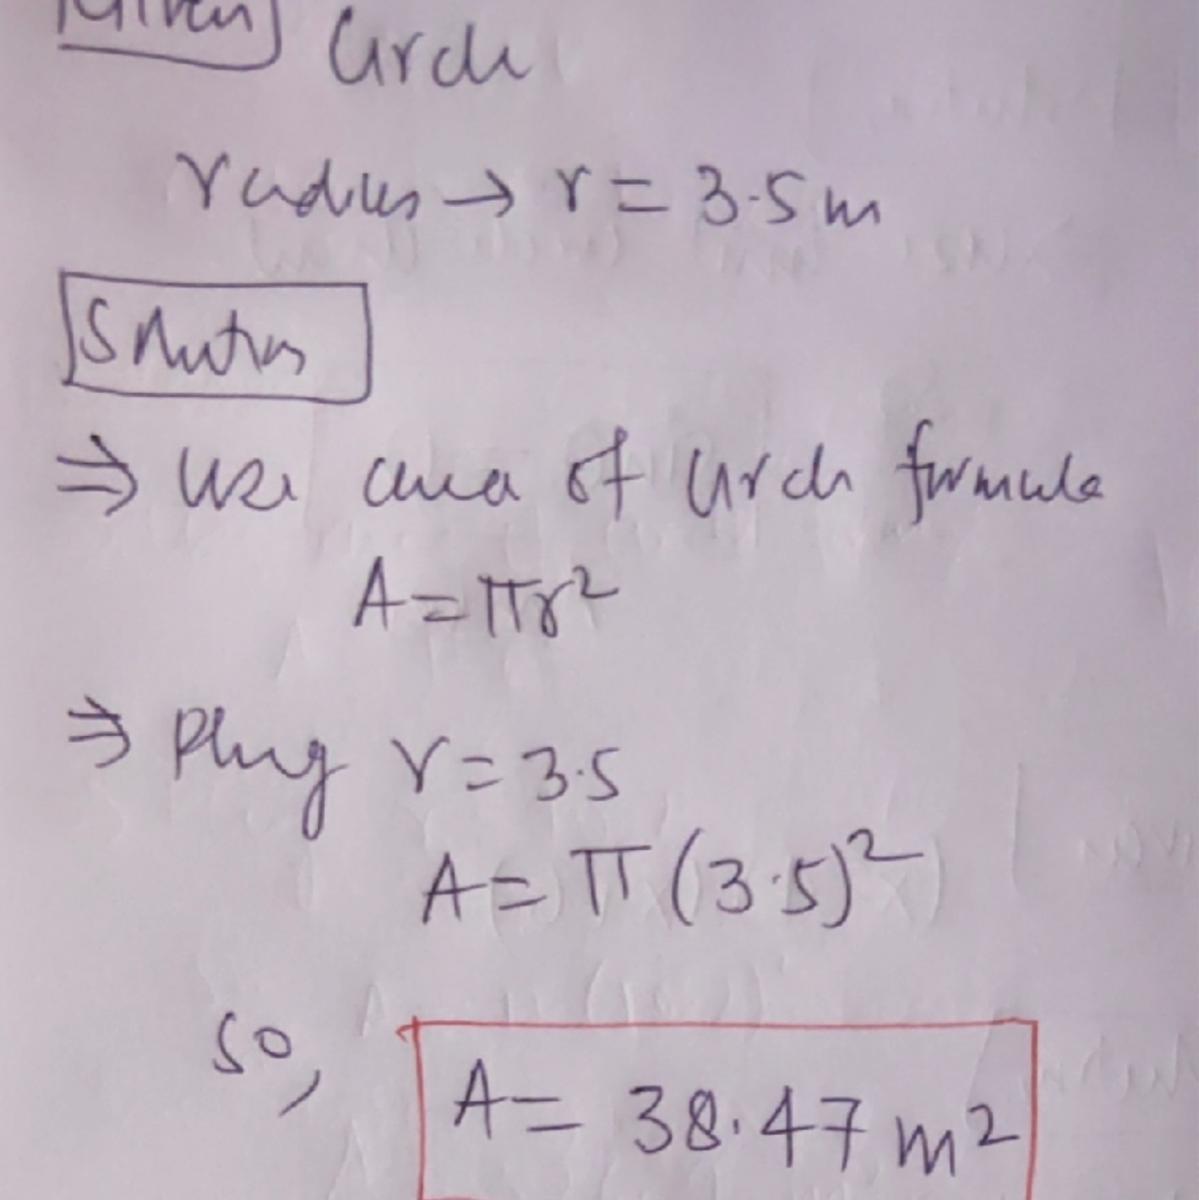 Given Circle
radius → r = 3.5 m
Solution
⇒ Use area of circle formula
A = πr²
⇒ Plug r = 3.5
A = π (3.5)²
so,
A = 38.47 m²